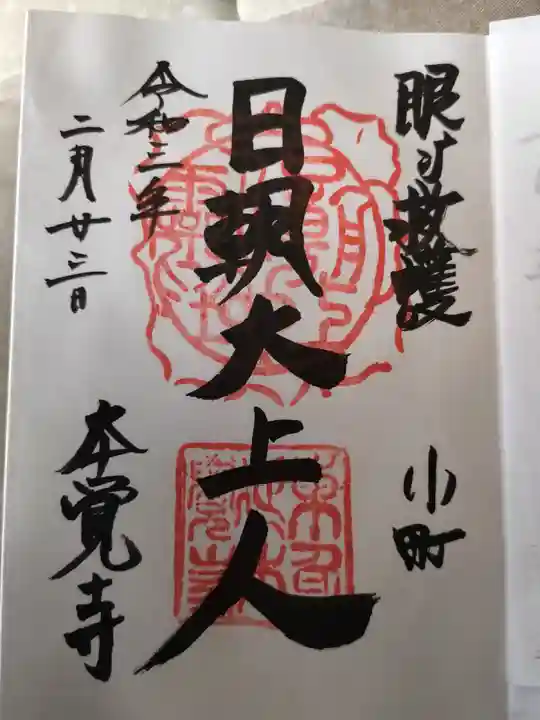 眼守救護
小町
日朝大上人
令和三年
二月廿三日
本覺寺